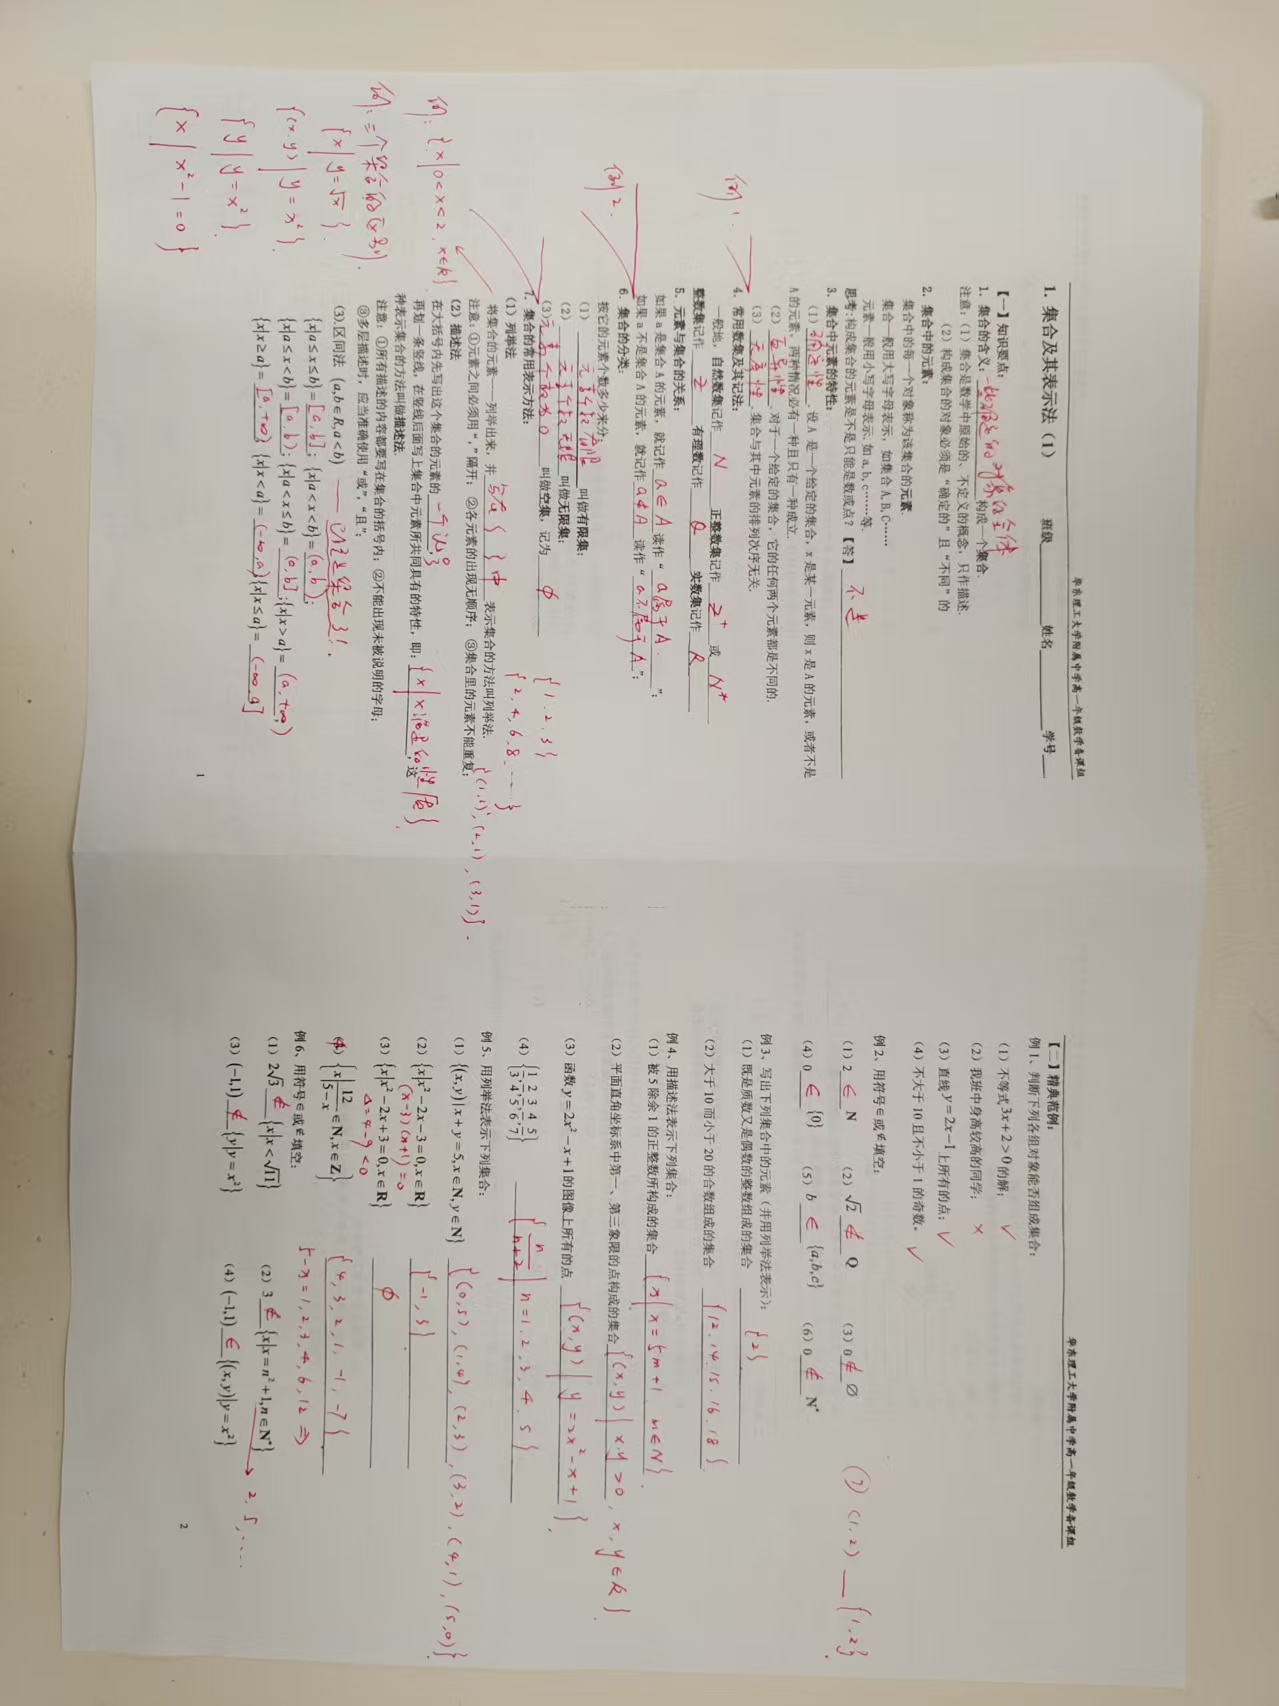 华东理工大学附属中学高一年级数学备课组
1. 集合及其表示法（1） 班级________ 姓名________ 学号____
【一】知识要点:
1. 集合的含义: 一些确定的对象的全体 构成一个集合.
注意:（1）集合是数学中原始的、不定义的概念，只作描述.
（2）构成集合的对象必须是“确定的”且“不同”的
2. 集合中的元素:
集合中的每一个对象称为该集合的元素.
集合一般用大写字母表示，如集合 A,B,C……
元素一般用小写字母表示.如 a,b,c……等.
思考:构成集合的元素是不是只能是数或点？【答】 不是
3. 集合中元素的特性:
（1）确定性.设 A 是一个给定的集合，x 是某一元素，则 x 是 A 的元素，或者不是
A 的元素，两种情况必有一种且只有一种成立.
（2）互异性.对于一个给定的集合，它的任何两个元素都是不同的.
（3）无序性.集合与其中元素的排列次序无关.
例1.
4. 常用数集及其记法:
一般地，自然数集记作 N 正整数集记作 Z⁺ 或 N*
整数集记作 Z 有理数记作 Q 实数集记作 R
5. 元素与集合的关系:
如果 a 是集合 A 的元素，就记作 a∈A 读作“ a属于A. ”;
如果 a 不是集合 A 的元素，就记作 a∉A 读作“ a不属于A ”;
例2.
6. 集合的分类:
按它的元素个数多少来分:
（1） 元素个数有限 叫做有限集;
（2） 元素个数无限 叫做无限集;
（3）元素个数为0 叫做空集，记为 ∅
{1.2.3}
{2,4,6,8,…}
{(1,1),(2,1),(3,1)}.
7. 集合的常用表示方法:
（1）列举法
将集合的元素一一列举出来，并 写在{ }中 表示集合的方法叫列举法.
注意: ①元素之间必须用“,”隔开; ②各元素的出现无顺序; ③集合里的元素不能重复;
（2）描述法
在大括号内先写出这个集合的元素的 一个记号
再划一条竖线，在竖线后面写上集合中元素所共同具有的特性，即: {x|x满足的性质}, 这
种表示集合的方法叫做描述法.
注意: ①所有描述的内容都要写在集合的括号内; ②不能出现未被说明的字母;
③多层描述时，应当准确使用“或”，“且”;
(3).区间法 (a,b∈R,a<b) —— 已经是集合了!.
{x|a≤x≤b}=[a,b]; {x|a<x<b}=(a,b);
{x|a≤x<b}=[a,b); {x|a<x≤b}=(a,b];{x|x>a}=(a,+∞);
{x|x≥a}=[a,+∞) {x|x<a}=(-∞,a){x|x≤a}=(-∞,a]
例: {x|0<x<2,x∈R}
例: 三个集合的区别.
{x|y=√x}.
{(x.y)|y=x²}.
{y|y=x²}.
{x|x²-1=0}
1
华东理工大学附属中学高一年级数学备课组
【二】精典范例:
例 1、判断下列各组对象能否组成集合:
（1）不等式 3x+2>0 的解; ✓
（2）我班中身高较高的同学; ×
（3）直线 y=2x−1 上所有的点; ✓
（4）不大于 10 且不小于 1 的奇数。 ✓
例 2、用符号∈或∉填空:
（1）2 ∈ N （2）√2 ∉ Q （3）0 ∉ ∅
⑦ (1,2) __ {1,2}.
（4）0 ∈ {0} （5）b ∈ {a,b,c} （6）0 ∉ N*
例 3、写出下列集合中的元素（并用列举法表示）:
（1）既是质数又是偶数的整数组成的集合 {2}
（2）大于 10 而小于 20 的合数组成的集合 {12.14.15.16.18}
例 4、用描述法表示下列集合:
（1）被 5 除余 1 的正整数所构成的集合 {x|x=5m+1 m∈N}
（2）平面直角坐标系中第一、第三象限的点构成的集合 {(x,y)|x.y>0, x,y∈R}.
（3）函数 y=2x²−x+1 的图像上所有的点 {(x,y)|y=2x²-x+1}.
（4）{1/3,2/4,3/5,4/6,5/7} {n/(n+2)|n=1.2.3.4.5}
例 5、用列举法表示下列集合:
（1）{(x,y)|x+y=5,x∈N,y∈N} {(0,5),(1,4),(2,3),(3,2),(4,1),(5,0)}
（2）{x|x²−2x−3=0,x∈R} {-1,3}
(x-3)(x+1)=0
（3）{x|x²−2x+3=0,x∈R} ∅
（4）{x|12/(5−x)∈N,x∈Z} {4,3,2,1,-1,-7}
5-x=1,2,3,4,6,12 ⇒
例 6、用符号∈或∉填空:
（1）2√3 ∉ {x|x<√11} （2）3 ∉ {x|x=n²+1,n∈N*} 2.5,....
（3）(−1,1) ∉ {y|y=x²} （4）(−1,1) ∈ {(x,y)|y=x²}
2